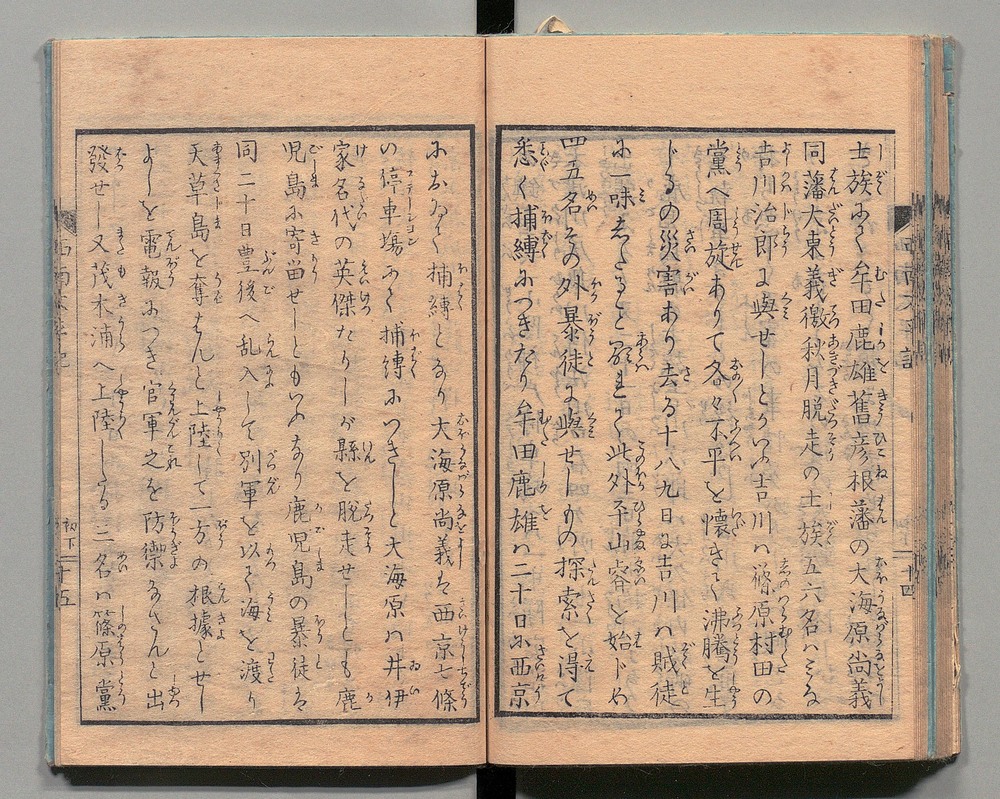 士族にて牟田鹿雄舊彦根藩の大海原尚義
同藩大東義徹秋月脱走の士族五六名ハミな
吉川治郎に與せしとかいふ吉川ハ篠原村田の
黨へ周旋ありて各々不平を懐きて沸騰を生
じるの災害あり去る十八九日は吉川ハ賊徒
に一味
四五名その外暴徒に與せしもの探索を得て
悉く捕縛につきたり牟田鹿雄ハ二十日に西京
において捕縛となり大海原尚義は西京七條
い停車塲にて捕縛につきしと大海原ハ井伊
家名代の英傑たりしが縣を脱走せしとも鹿
児島に寄留せしともいふなり鹿児島の暴徒は
同二十日豊後へ乱入して別軍を以て海を渡り
天草島を奪はんと上陸して一方の根據とせし
よしを電報につき官軍之を防禦なさんと出
發せし又茂木浦へ上陸したる三名ハ篠原黨
西南太平記
初下
十五